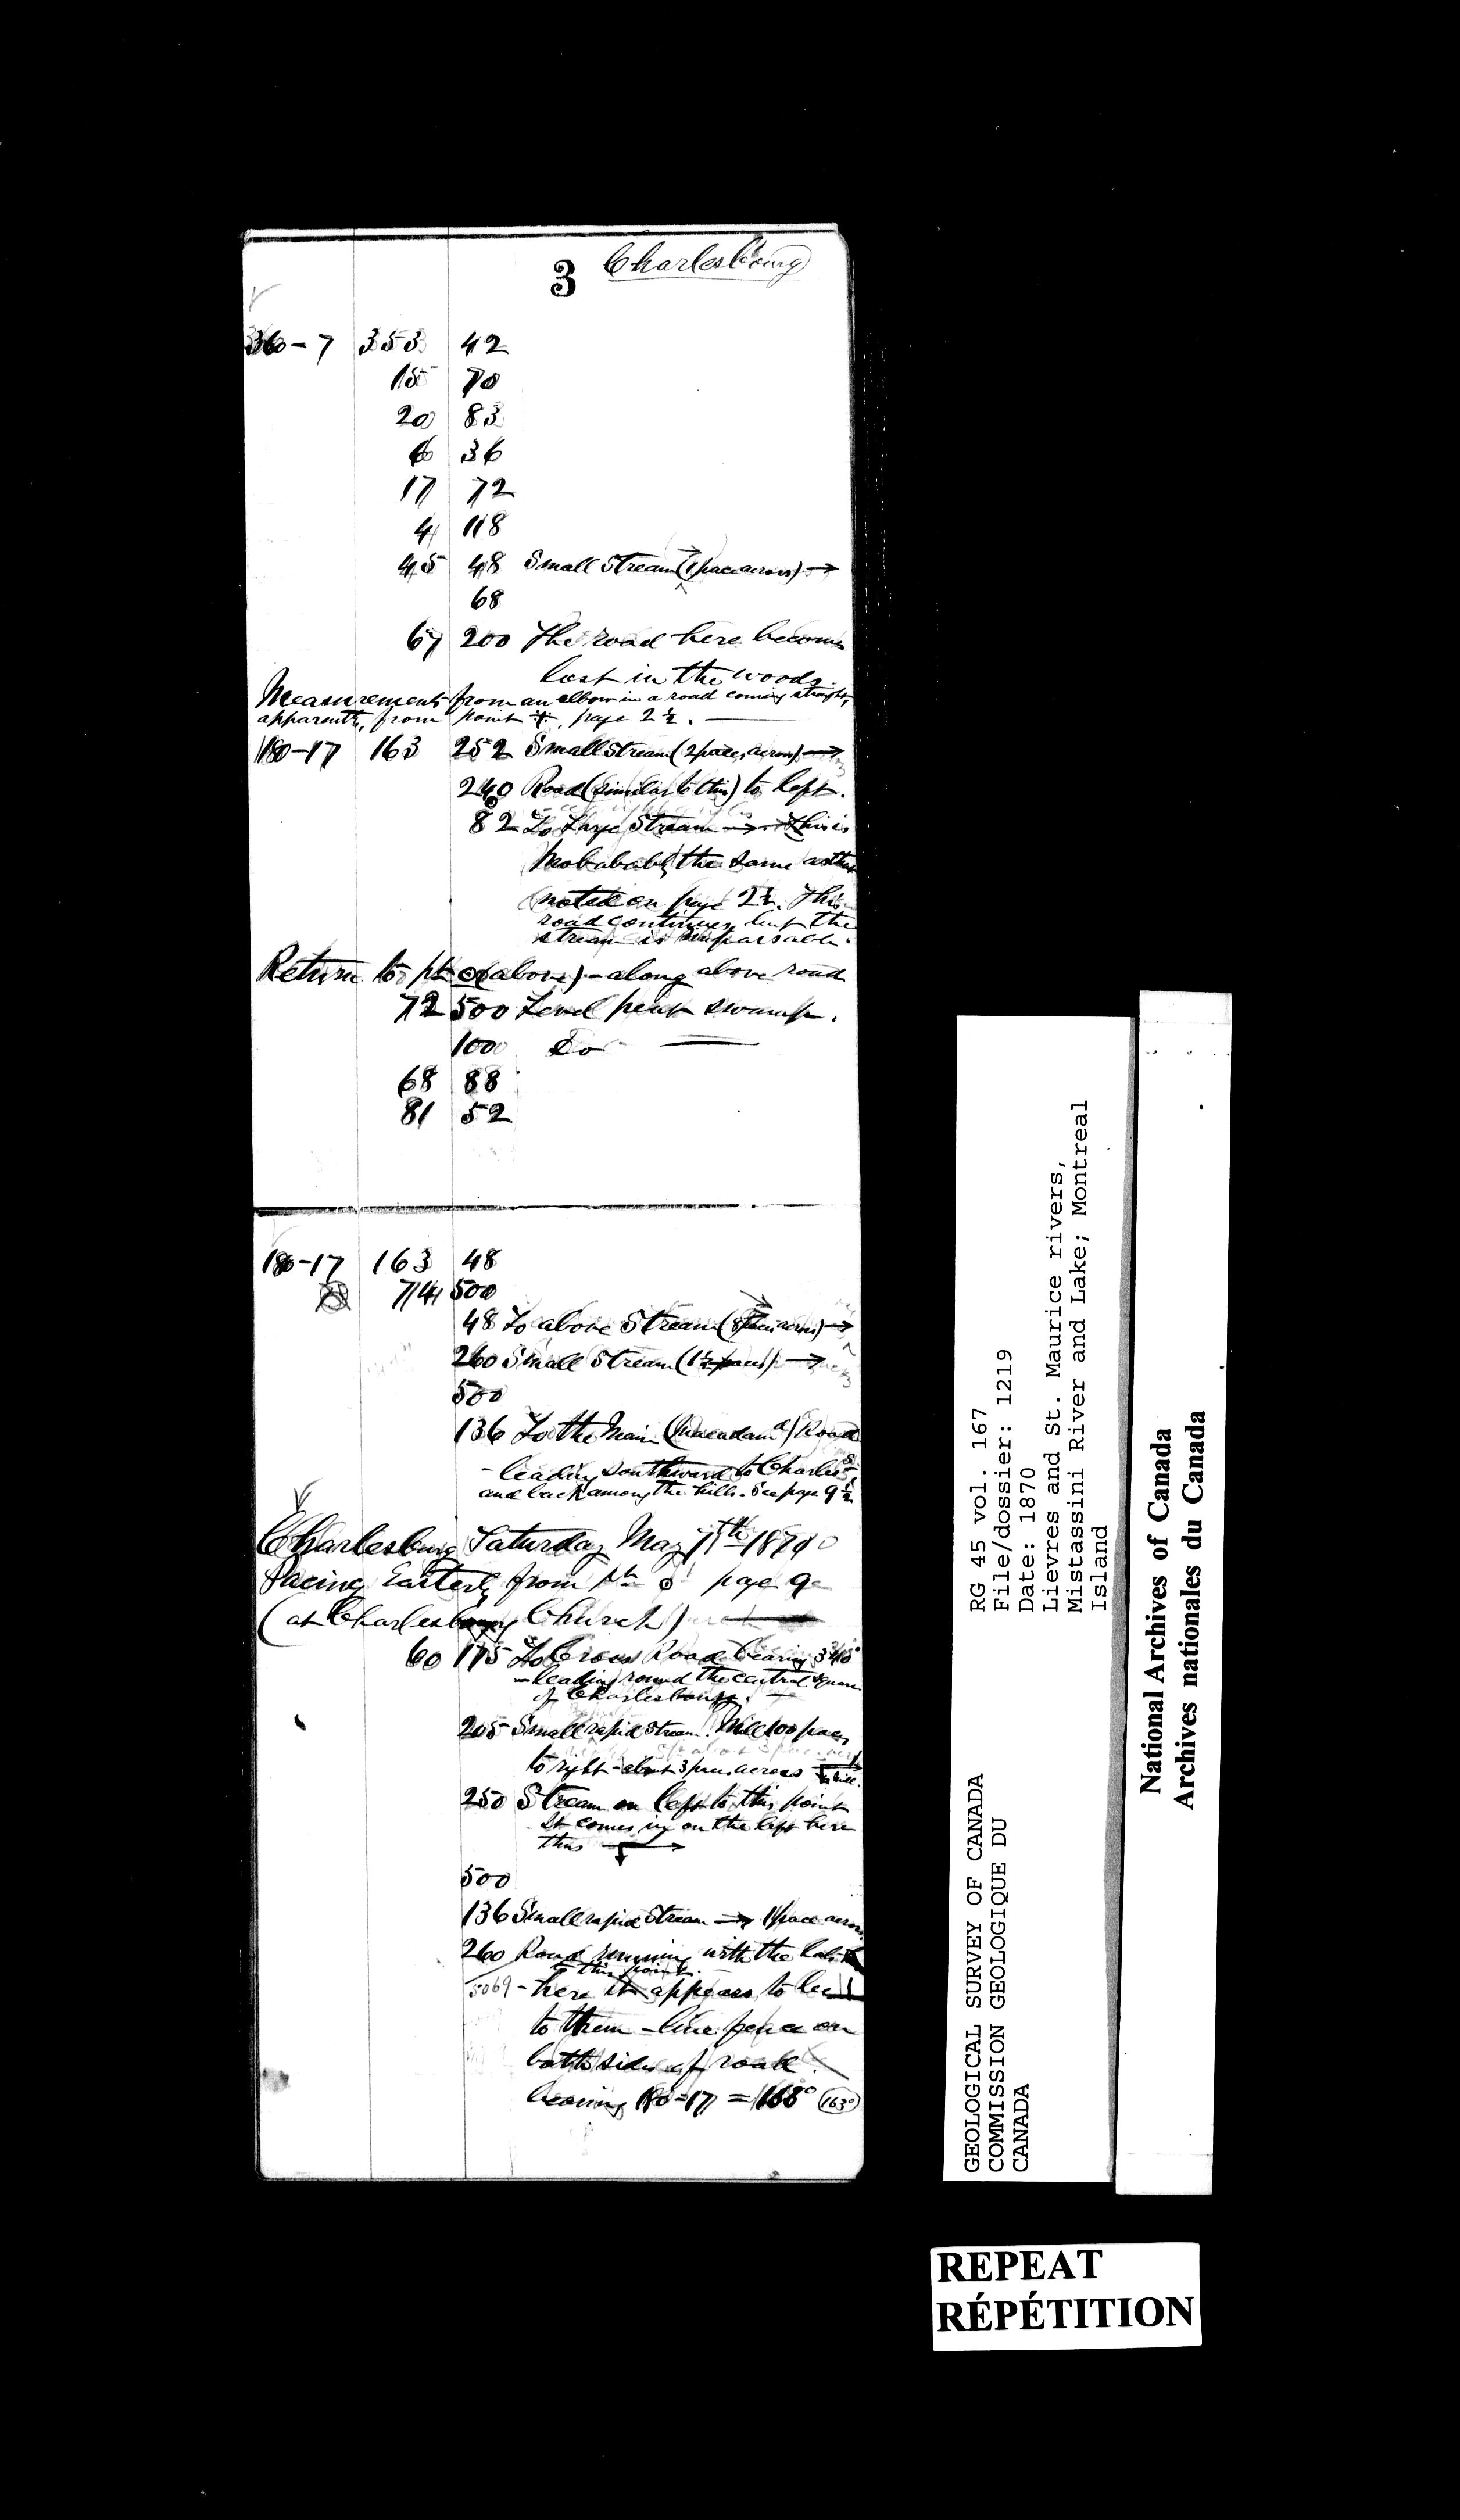 3 Charlesbourg
360-7 353 42
15 70
20 83
6 36
17 72
4 118
45 48 Small Stream (1 pace across) →
68
67 200 The road here becomes
lost in the woods.
Measurements from an elbow in a road coming straight,
apparently, from point +, page 2½.
180-17 163 252 Small stream (2 paces across) →
240 Road (similar to this) to left.
82 To Large Stream → This is
probabably the same as that
noted on page 2½. This
road continues but the
stream is impassable.
Return to pt ⊙ (above) - along above road
72 500 Level peat swamp.
1000 Do
68 88
81 52
180-17 163 48
74 500
48 To above Stream (8 paces across) →
260 Small Stream (1½ paces) →
500
136 To the Main (Macadam) Road
- leading southward to Charles
and back among the hills. See page 9½
Charlesbourg Saturday May 7th 1870
Pacing Easterly from pt ⊙ page 9
(at Charlesbourg Church)
60 175 To Cross Road bearing 340°
- leading round the central square
of Charlesbourg.
205 Small rapid stream. Mill 100 paces
to right - about 3 paces across
250 Stream on left to this point
It comes in on the left here
thus
500
136 Small rapid Stream → 1 pace across
260 Road running with the
to this point.
5069 - here it appears to
to them - line fence on
both sides of road.
bearing 180-17 = 163° (163°)
GEOLOGICAL SURVEY OF CANADA
COMMISSION GEOLOGIQUE DU
CANADA
RG 45 vol. 167
File/dossier: 1219
Date: 1870
Lievres and St. Maurice rivers,
Mistassini River and Lake; Montreal
Island
National Archives of Canada
Archives nationales du Canada
REPEAT
RÉPÉTITION